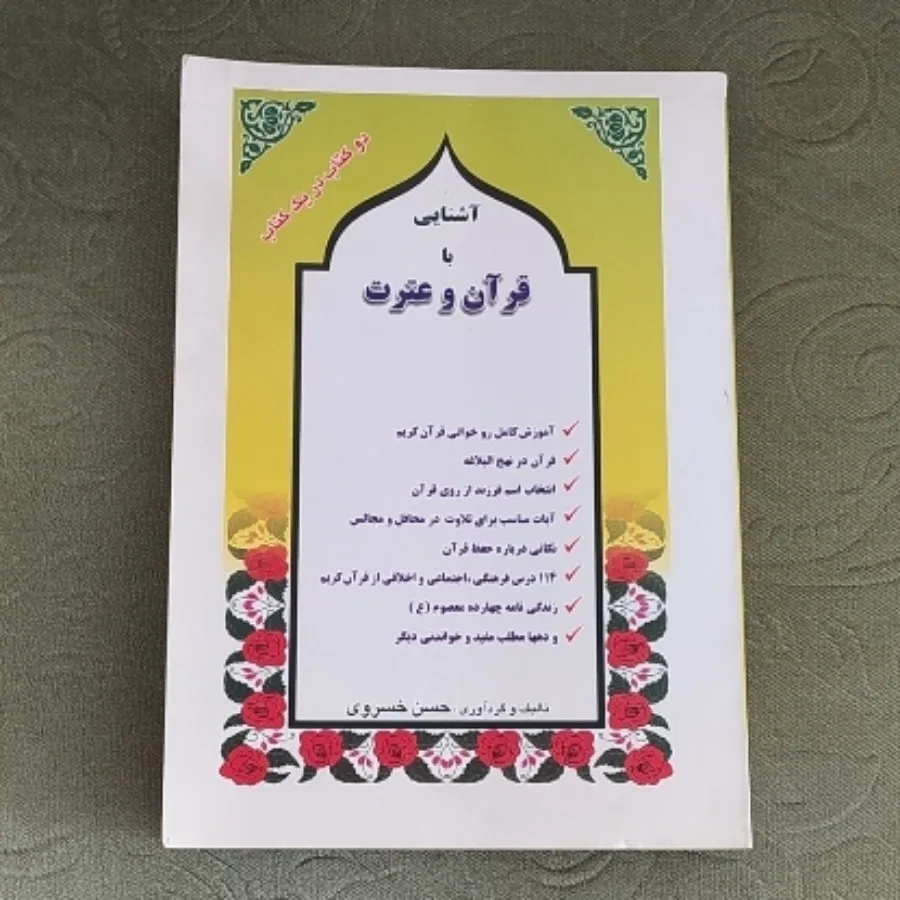 دو کتاب در یک کتاب
آشنایی
با
قرآن و عترت
آموزش کامل رو خوانی قرآن کریم
قرآن در نهج البلاغه
انتخاب اسم فرزند از روی قرآن
آیات مناسب برای تلاوت در محافل و مجالس
نکاتی درباره حفظ قرآن
۱۱۴ درس فرهنگی ،اجتماعی و اخلاقی از قرآن کریم
زندگی نامه چهارده معصوم (ع)
و دهها مطلب مفید و خواندنی دیگر
تالیف و گردآوری : حسن خسروی